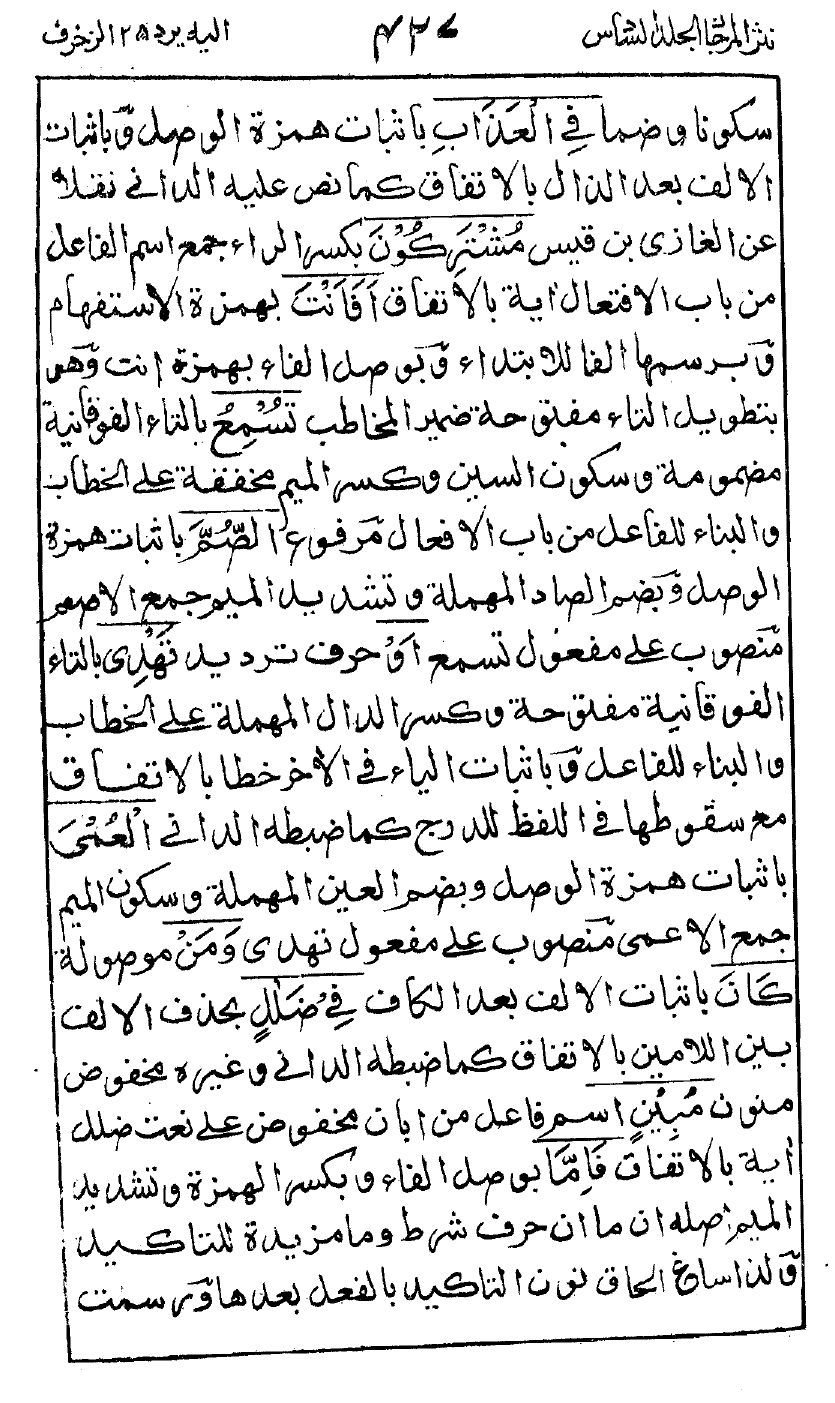 نثر المرجان الجلد السادس ٤٣٦ اليه يرد ٢٥ الزخرف
سكونا وضما فِى الْعَذَابِ باثبات همزة الوصل وَباثبات
الالف بعد الذال بالاتفاق كما نص عليه الدانى نقلا
عن الغازى بن قيس مُشْتَرِكُوْنَ بكسر الراء جمع اسم الفاعل
من باب الافتعال اية بالاتفاق اَفَاَنْتَ بهمزة الاستفهام
وَبرسمها الفا للابتداء وَبوصل الفاء بهمزة انت وَهى
بتطويل التاء مفتوحة ضمير المخاطب تُسْمِعُ بالتاء الفوقانية
مضمومة وسكون السين وكسر الميم مخففة على الخطاب
والبناء للفاعل من باب الافعال مرفوع الصُّمَّ باثبات همزة
الوصل وَبضم الصاد المهملة وتشديد الميم جمع الاصم
منصوب على مفعول تسمع اَوْ حرف ترديد تَهْدِى بالتاء
الفوقانية مفتوحة وكسر الدال المهملة على الخطاب
والبناء للفاعل وَباثبات الياء فى الاخر خطا بالاتفاق
مع سقوطها فى اللفظ للدرج كما ضبطه الدانى الْعُمْىَ
باثبات همزة الوصل وبضم العين المهملة وسكون الميم
جمع الاعمى منصوب على مفعول تهدى وَمَنْ موصولة
كَانَ باثبات الالف بعد الكاف فِىْ ضَلٰلٍ بحذف الالف
بين اللامين بالاتفاق كما ضبطه الدانى وغيره مخفوض
منون مُبِيْنٍ اسم فاعل من ابان مخفوض على نعت ضلل
اية بالاتفاق فَاِمَّا بوصل الفاء وبكسر الهمزة وتشديد
الميم اصله ان ما ان حرف شرط وما مزيدة للتاكيد
وَلذا ساغ الحاق نون التاكيد بالفعل بعدها وَرسمت